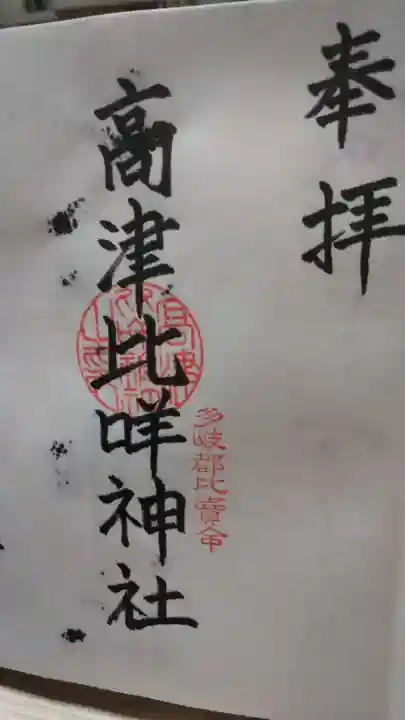 奉拝
高津比咩神社
多岐都比賣命